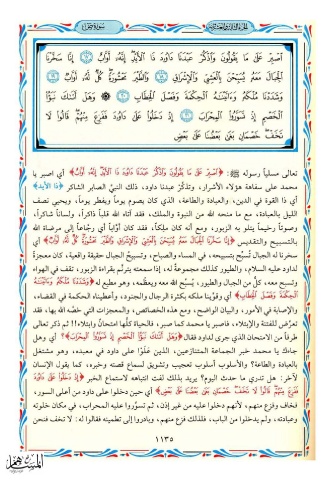 اصْبِرْ عَلَىٰ مَا يَقُولُونَ وَاذْكُرْ عَبْدَنَا دَاوُودَ ذَا الْأَيْدِ إِنَّهُ أَوَّابٌ إِنَّا سَخَّرْنَا
الْجِبَالَ مَعَهُ يُسَبِّحْنَ بِالْعَشِيِّ وَالْإِشْرَاقِ وَالطَّيْرَ مَحْشُورَةً كُلٌّ لَهُ أَوَّابٌ
وَشَدَدْنَا مُلْكَهُ وَآتَيْنَاهُ الْحِكْمَةَ وَفَصْلَ الْخِطَابِ وَهَلْ أَتَاكَ نَبَأُ
الْخَصْمِ إِذْ تَسَوَّرُوا الْمِحْرَابَ إِذْ دَخَلُوا عَلَىٰ دَاوُودَ فَفَزِعَ مِنْهُمْ قَالُوا لَا
تَخَفْ خَصْمَانِ بَغَىٰ بَعْضُنَا عَلَىٰ بَعْضٍ
تعالى مسلياً رسوله ﷺ: ﴿اصْبِرْ عَلَى مَا يَقُولُونَ وَاذْكُرْ عَبْدَنَا دَاوُودَ ذَا الْأَيْدِ إِنَّهُ أَوَّابٌ﴾ أي اصبر يا
محمد على سفاهة هؤلاء الأشرار، وتذكَّر عبدنا داود، ذلك النبيَّ الصابر الشاكر ﴿ذَا الأَيْدِ﴾
أي ذا القوة في الدين، والعبادة والطاعة، الذي كان يصوم يوماً ويفطر يوماً، ويحيي نصف
الليل بالعبادة، مع ما منحه الله من النبوة والملك، فقد آتاه الله قلباً ذاكراً، ولساناً شاكراً،
وصوتاً رخيماً يتلو به الزبور، ومع أنه كان ملِكاً، فقد كان أوَّاباً أي رجَّاعاً إلى مرضاة الله
بالتسبيح والتقديس ﴿إِنَّا سَخَّرْنَا الْجِبَالَ مَعَهُ يُسَبِّحْنَ بِالْعَشِيِّ وَالْإِشْرَاقِ وَالطَّيْرَ مَحْشُورَةً كُلٌّ لَهُ أَوَّابٌ﴾ أي
سخرنا له الجبال تُسبِّح بتسبيحه، في المساء والصباح، وتسبيحُ الجبال حقيقة واقعة، كان معجزةً
لداود عليه السلام، والطيور كذلك مجموعةٌ له، إذا سمعته يترنَّم بقراءة الزبور، تقف في الهواء
وتسبح معه، كلٌّ من الجبال والطيور، يُسبِّح الله معه ويعظِّمه، وهو مطيع له ﴿وَشَدَدْنَا مُلْكَهُ وَآتَيْنَاهُ
الْحِكْمَةَ وَفَصْلَ الْخِطَابِ﴾ أي وقوَّينا ملكه بكثرة الرجال والجنود، وأعطيناه الحكمة في القضاء،
والإصابة في الأمور، والبيان الواضح، ومع هذه الخصائص، والمعجزات التي خصَّه الله بها، فقد
تعرَّض للفتنة والابتلاء، فاصبر يا محمد كما صبر، فالحياة كلُّها امتحانٌ وابتلاء!! ثم ذكر تعالى
طرفاً من الامتحان الذي جرى لداود فقال ﴿وَهَلْ أَتَاكَ نَبَأُ الْخَصْمِ إِذْ تَسَوَّرُوا الْمِحْرَابَ﴾؟ أي وهل
جاءك يا محمد خبر الجماعة المتنازعين، الذين علَوْا على داود في معبده، وهو مشتغل
بالعبادة والطاعة؟ والأسلوب أسلوب تعجيب وتشويق لسماع قصته وخبره، كما يقول الإنسان
لآخر: هل تدري ما حدث اليوم؟ يريد بذلك لفت انتباهه لاستماع الخبر ﴿إِذْ دَخَلُوا عَلَى دَاوُودَ
فَفَزِعَ مِنْهُمْ قَالُوا لَا تَخَفْ خَصْمَانِ بَغَى بَعْضُنَا عَلَى بَعْضٍ﴾ أي حين دخلوا على داود من أعلى السور،
فخاف وفزع منهم، لأنهم دخلوا عليه من غير إذن، ثم تسوَّروا عليه المحراب، في مكان خلوته
وعبادته، ولم يدخلوا من الباب، فلذلك فزع منهم، وبادروا إلى تطمينه فقالوا له: لا تخف فنحن
١١٣٥